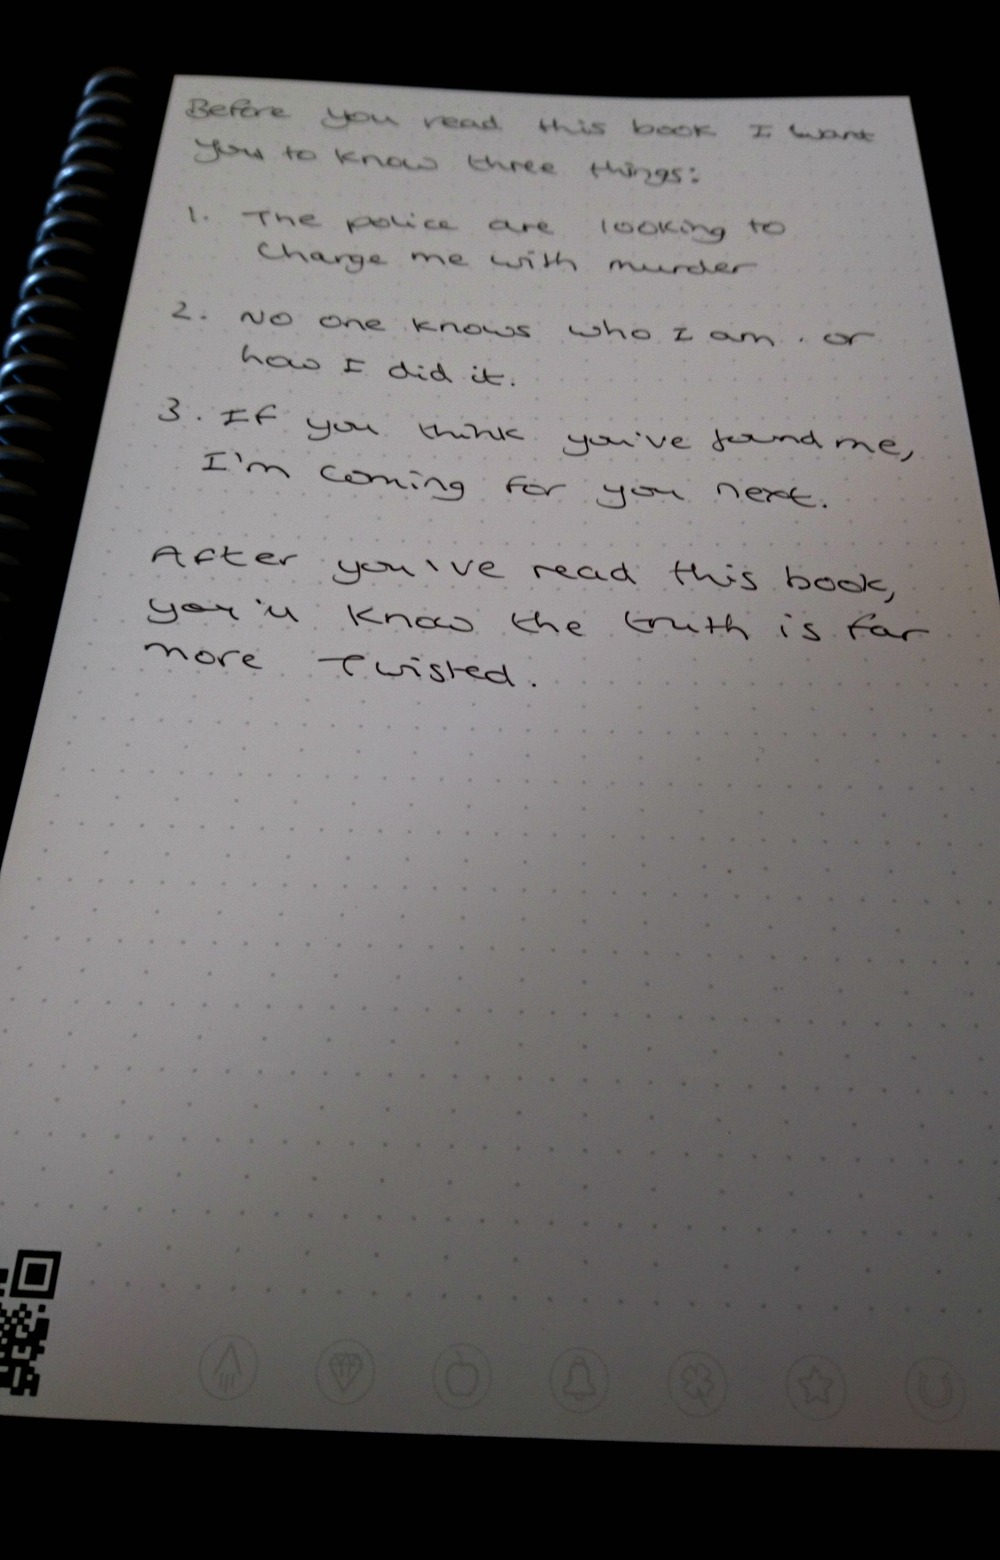 Before you read this book I want
you to know three things:
1. The police are looking to
charge me with murder
2. No one knows who I am. or
how I did it.
3. If you think you've found me,
I'm coming for you next.
After you've read this book,
you'll know the truth is far
more twisted.